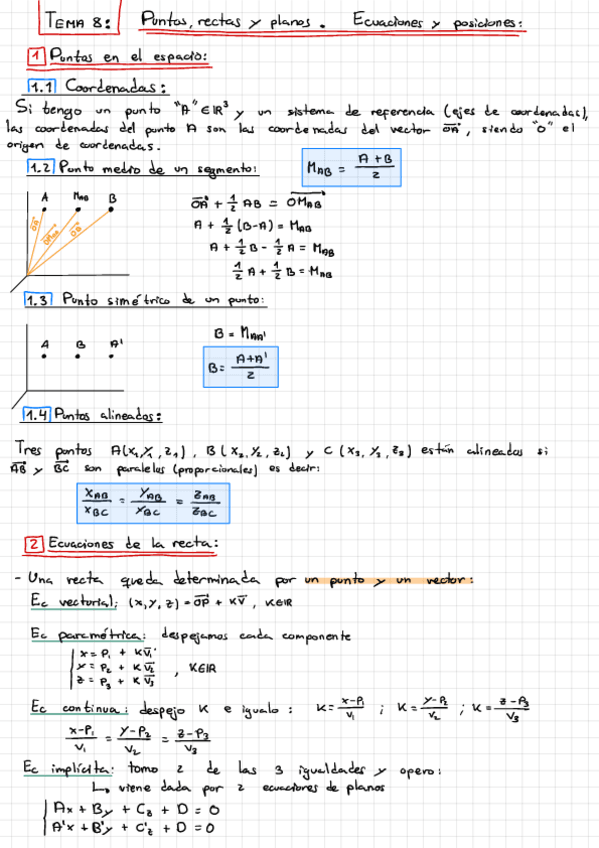 TEMA 8: Puntos, rectas y planos. Ecuaciones y posiciones:
1 Puntos en el espacio:
1.1 Coordenadas:
Si tengo un punto "A" ∈ℝ³ y un sistema de referencia (ejes de coordenadas),
las coordenadas del punto A son las coordenadas del vector OA, siendo "O" el
origen de coordenadas.
1.2 Punto medio de un segmento:
M_AB = (A+B)/2
A M_AB B
OA OM_AB OA
OA + 1/2 AB = OM_AB
A + 1/2 (B-A) = M_AB
A + 1/2 B - 1/2 A = M_AB
1/2 A + 1/2 B = M_AB
1.3 Punto simétrico de un punto:
A B A'
B = M_AA'
B = (A+A')/2
1.4 Puntos alineados:
Tres puntos A(x₁,y₁,z₁), B(x₂,y₂,z₂) y C(x₃,y₃,z₃) están alineados si
AB y BC son paralelos (proporcionales) es decir:
x_AB/x_BC = y_AB/y_BC = z_AB/z_BC
2 Ecuaciones de la recta:
- Una recta queda determinada por un punto y un vector:
Ec vectorial: (x,y,z) = OP + KV, K∈ℝ
Ec paramétrica: despejamos cada componente
x = P₁ + KV₁
y = P₂ + KV₂, K∈ℝ
z = P₃ + KV₃
Ec continua: despejo K e igualo: K = (x-P₁)/V₁ ; K = (y-P₂)/V₂ ; K = (z-P₃)/V₃
(x-P₁)/V₁ = (y-P₂)/V₂ = (z-P₃)/V₃
Ec implícita: tomo 2 de las 3 igualdades y opero:
↳ viene dada por 2 ecuaciones de planos
Ax + By + Cz + D = 0
A'x + B'y + C'z + D = 0